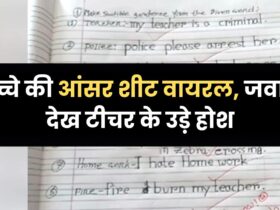 ① Make suitable sentence from the given word:
a) Teacher:- my teacher is a criminal.
② police: police please arrest her
च्चे की आंसर शीट वायरल, जवा
देख टीचर के उड़े होश
in zebra crossing.
Home work- I hate Home work
fire- Fire burn my teacher.